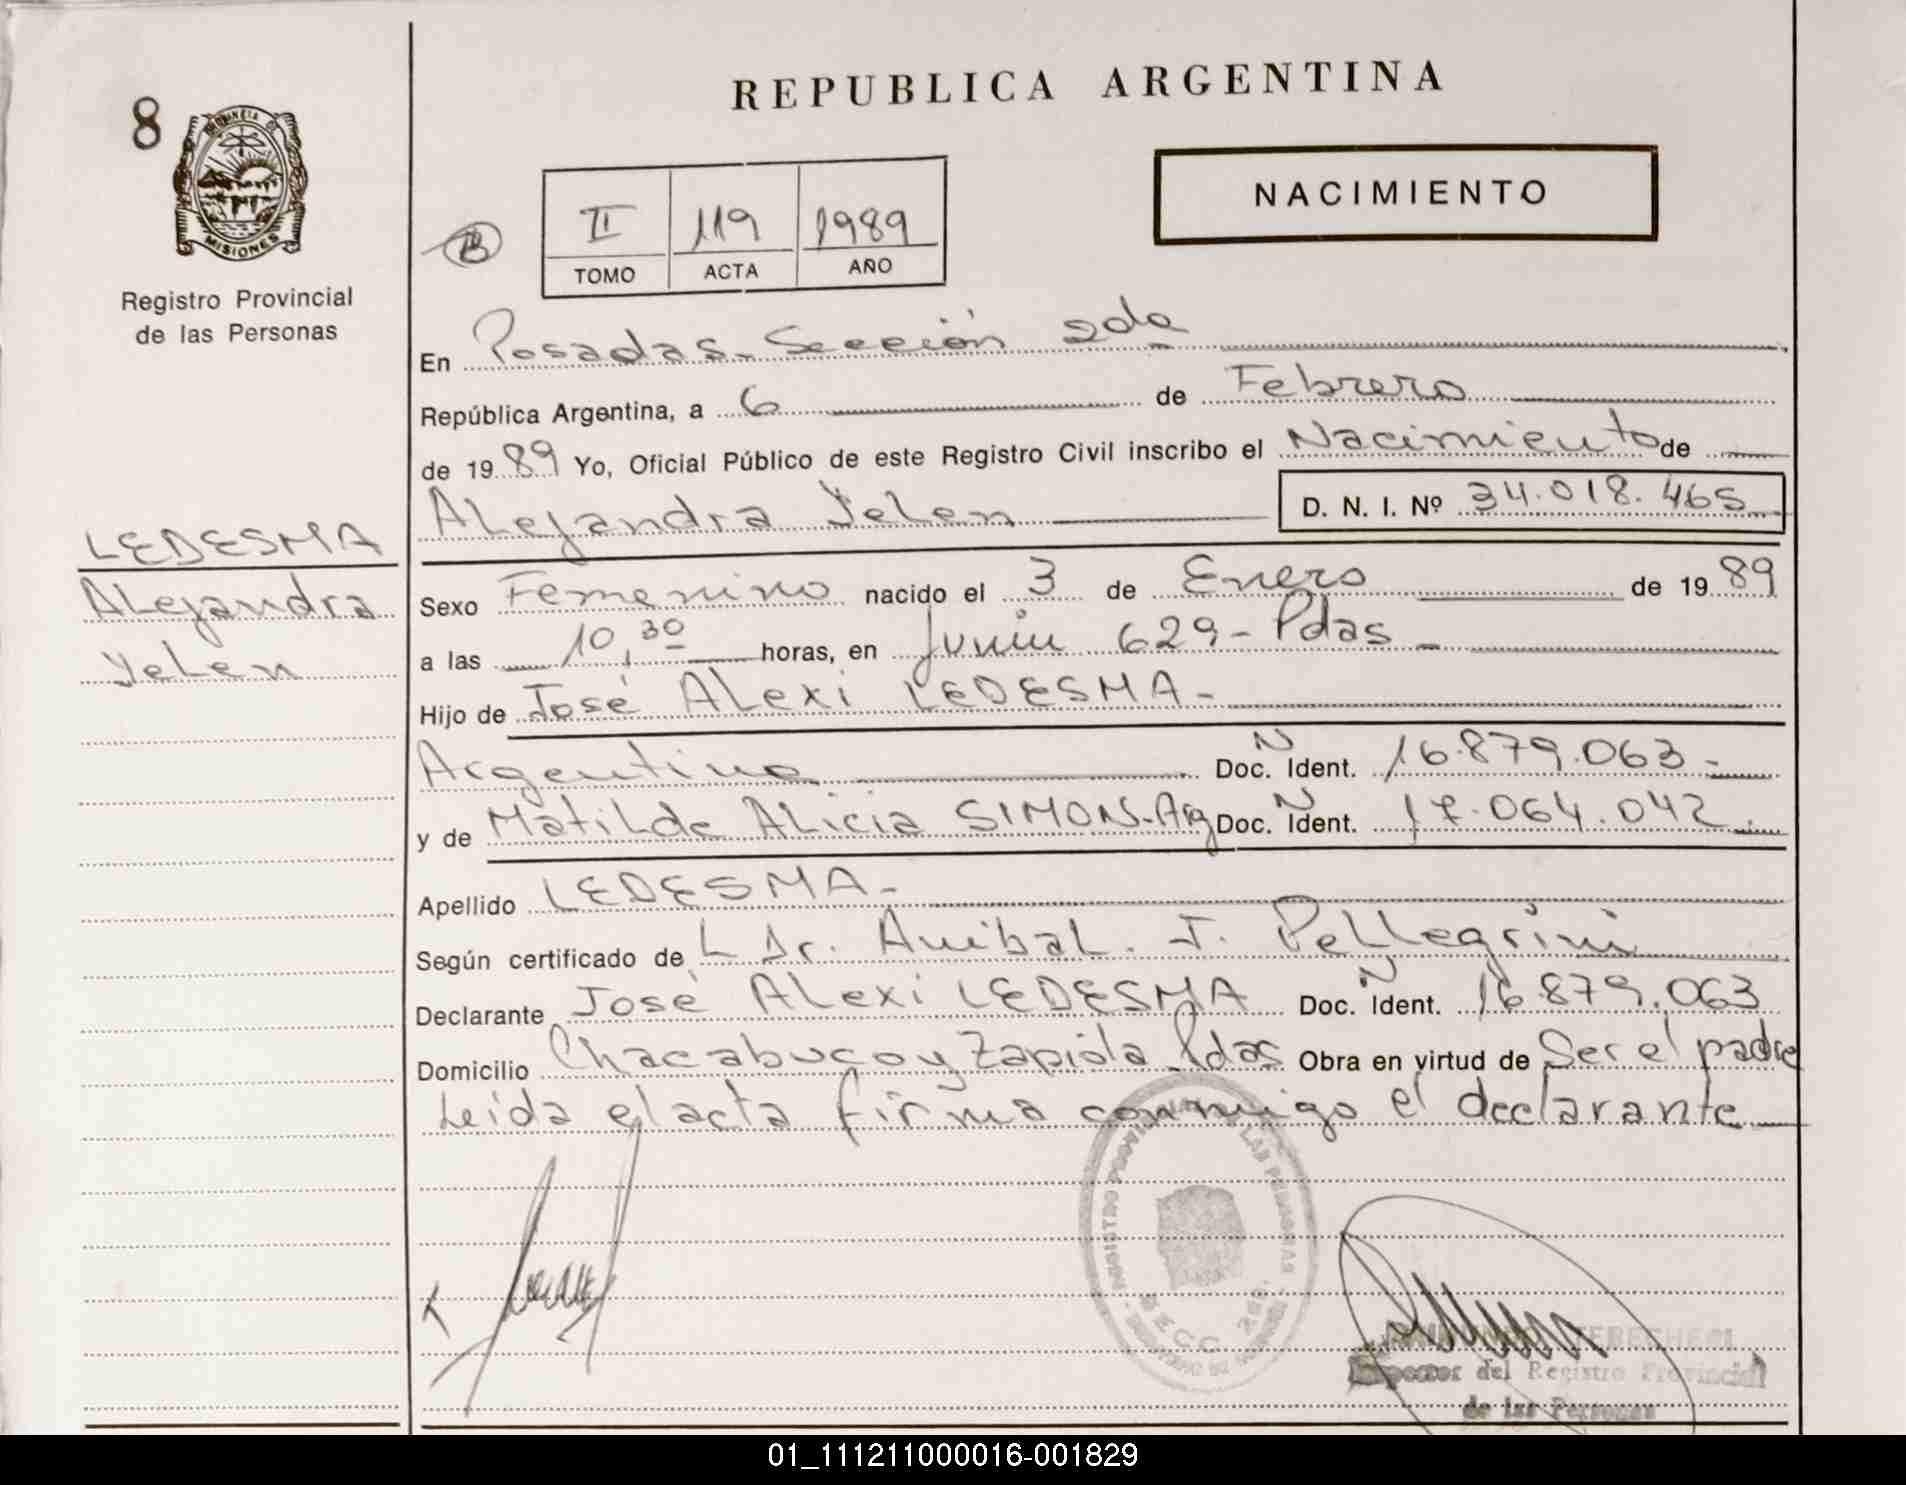 REPUBLICA ARGENTINA
8
PROVINCIA DE
MISIONES
Registro Provincial
de las Personas
NACIMIENTO
B
II 119 1989
TOMO ACTA AÑO
En Posadas - Sección 2da
República Argentina, a 6 de Febrero
de 1989 Yo, Oficial Público de este Registro Civil inscribo el Nacimiento de
Alejandra Yelen D. N. I. Nº 34.018.465
LEDESMA
Alejandra
Yelen
Sexo Femenino nacido el 3 de Enero de 1989
a las 10,30 horas, en Junin 629 - Pdas -
Hijo de José Alexi LEDESMA -
Argentino Doc. N Ident. 16.879.063 -
y de Matilde Alicia SIMON - Arg Doc. N Ident. 17.064.042
Apellido LEDESMA -
Según certificado de L Dr. Anibal. J. Pellegrini
Declarante José Alexi LEDESMA Doc. N Ident. 16.879.063
Domicilio Chacabuco y Zapiola Pdas Obra en virtud de Ser el padre
Leida el acta firma conmigo el declarante
SECC. 2da.
del Registro Provincial
de las Personas
01_111211000016-001829